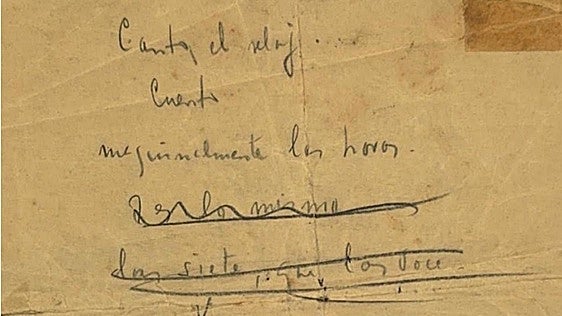 Canta el reloj...
Cuento
maquinalmente las horas.
Es lo mismo
las siete, que las doce.